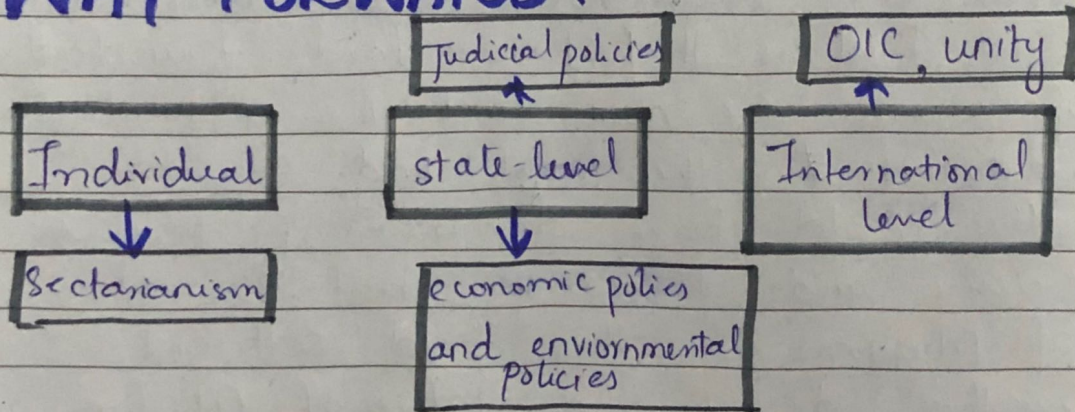 WAY FORWARD:
Judicial policies
OIC, unity
Individual
state-level
International
level
Sectarianism
economic polies
and enviornmental
policies